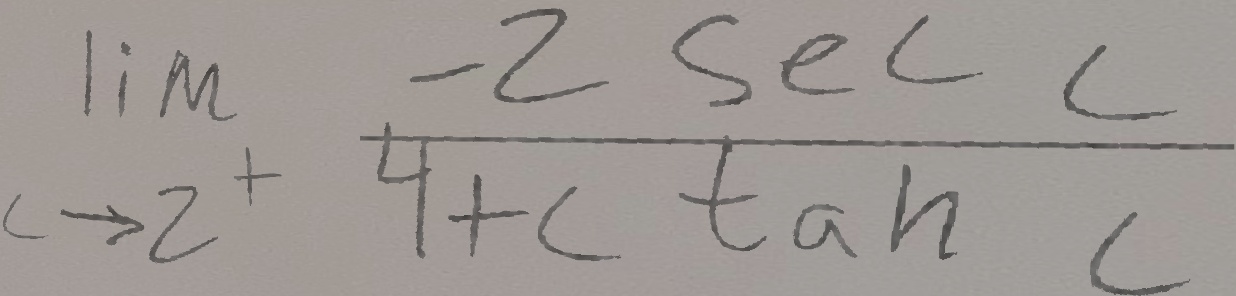 lim c→2⁺ (-2 sec c)/(4+c tan c)